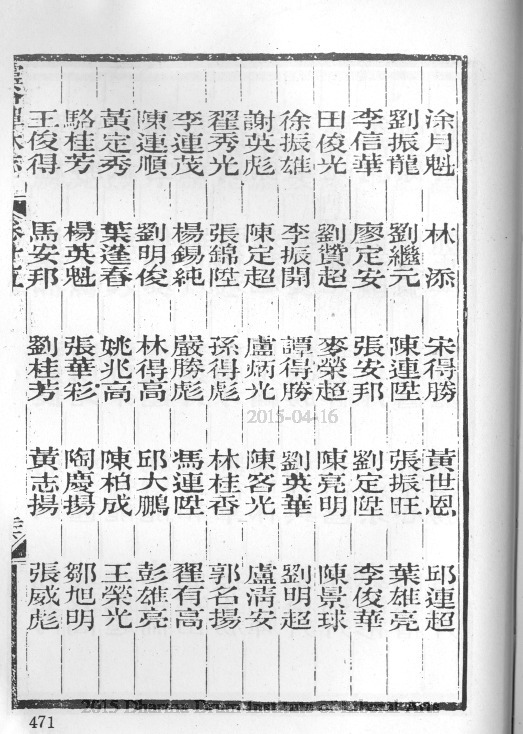 涂月魁　林　添　宋得勝　黃世恩　邱連超
劉振龍　劉繼元　陳連陞　張振旺　葉雄亮
李信華　廖定安　張安邦　劉定陞　李俊華
田俊光　劉贊超　麥榮超　陳亮明　陳景球
徐振雄　李振開　譚得勝　劉英華　劉明超
謝英彪　陳定超　盧炳光　陳客光　盧清安
翟秀光　張錦陞　孫得彪　林桂香　郭名揚
李連茂　楊錫純　嚴勝彪　馮連陞　翟有高
陳連順　劉明俊　林得高　邱大鵬　彭雄亮
黃定秀　葉逢春　姚兆高　陳柏成　王榮光
駱桂芳　楊英魁　張華彩　陶慶揚　鄒旭明
王俊得　馬安邦　劉桂芳　黃志揚　張威彪
卷十五
2015-04-16
2015 Dharma Drum Institute of Liberal Arts
471